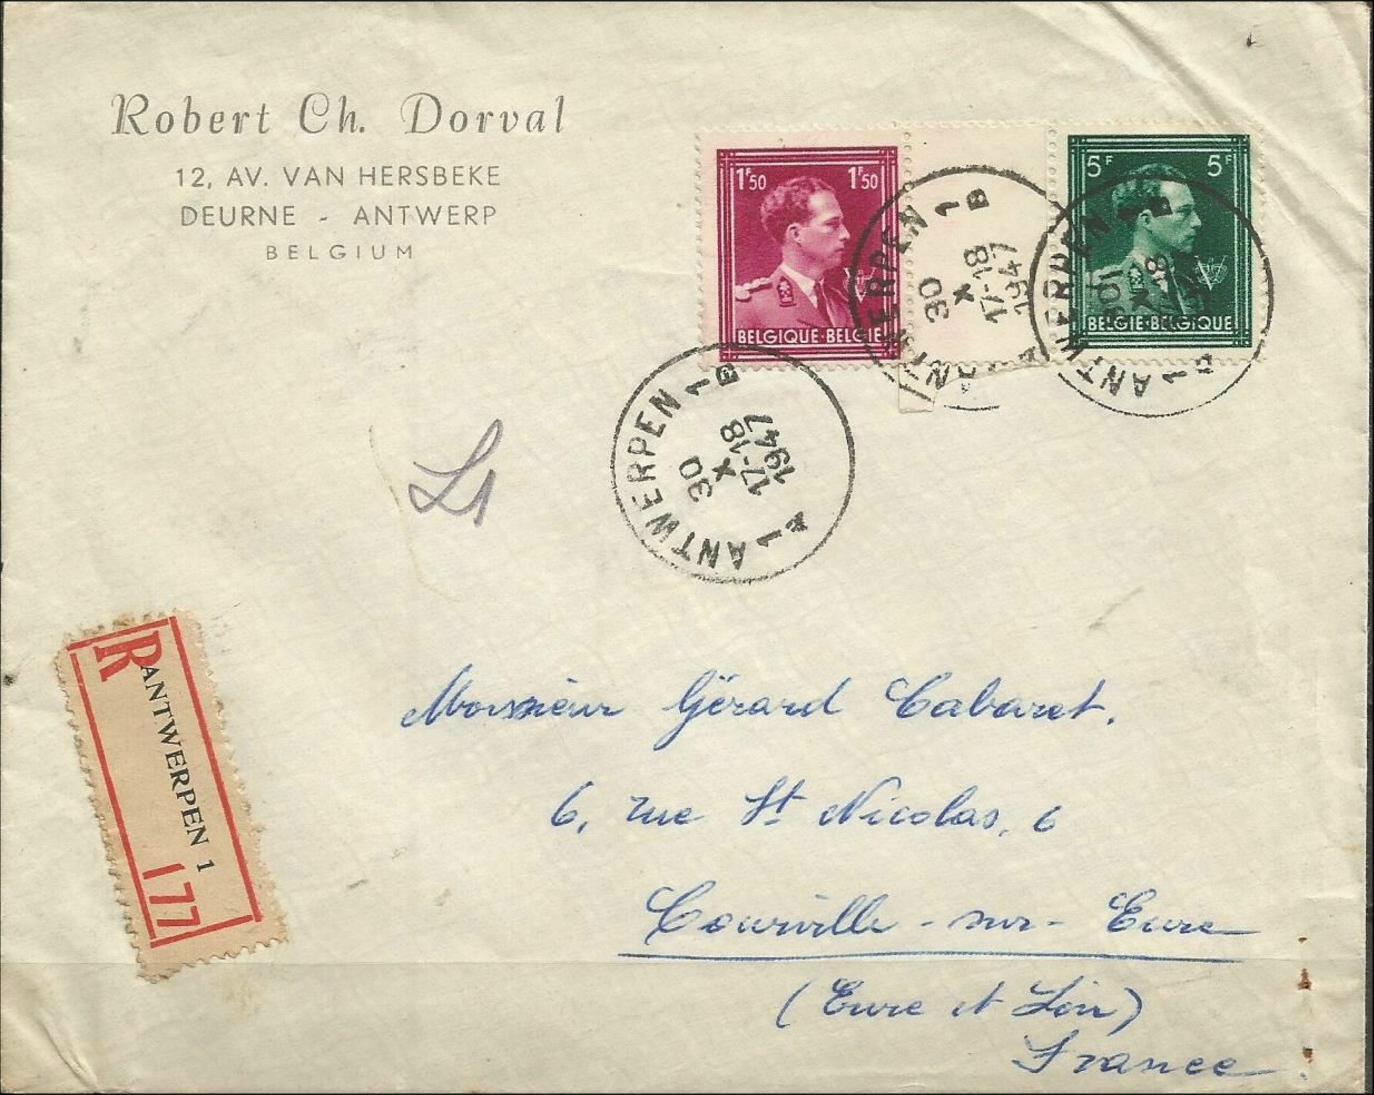 Robert Ch. Dorval
12, AV. VAN HERSBEKE
DEURNE - ANTWERP
BELGIUM
1F50 1F50
BELGIQUE·BELGIE
5F 5F
BELGIE·BELGIQUE
ANTWERPEN 1 B
30
X
17-18
1947
ANTWERPEN 1 B
1
30
X
17-18
1947
ANTWERPEN 1 B
1
R
ANTWERPEN 1
177
Monsieur Gérard Cabaret.
6, rue St Nicolas, 6
Courville-sur-Eure
(Eure et Loir)
France.